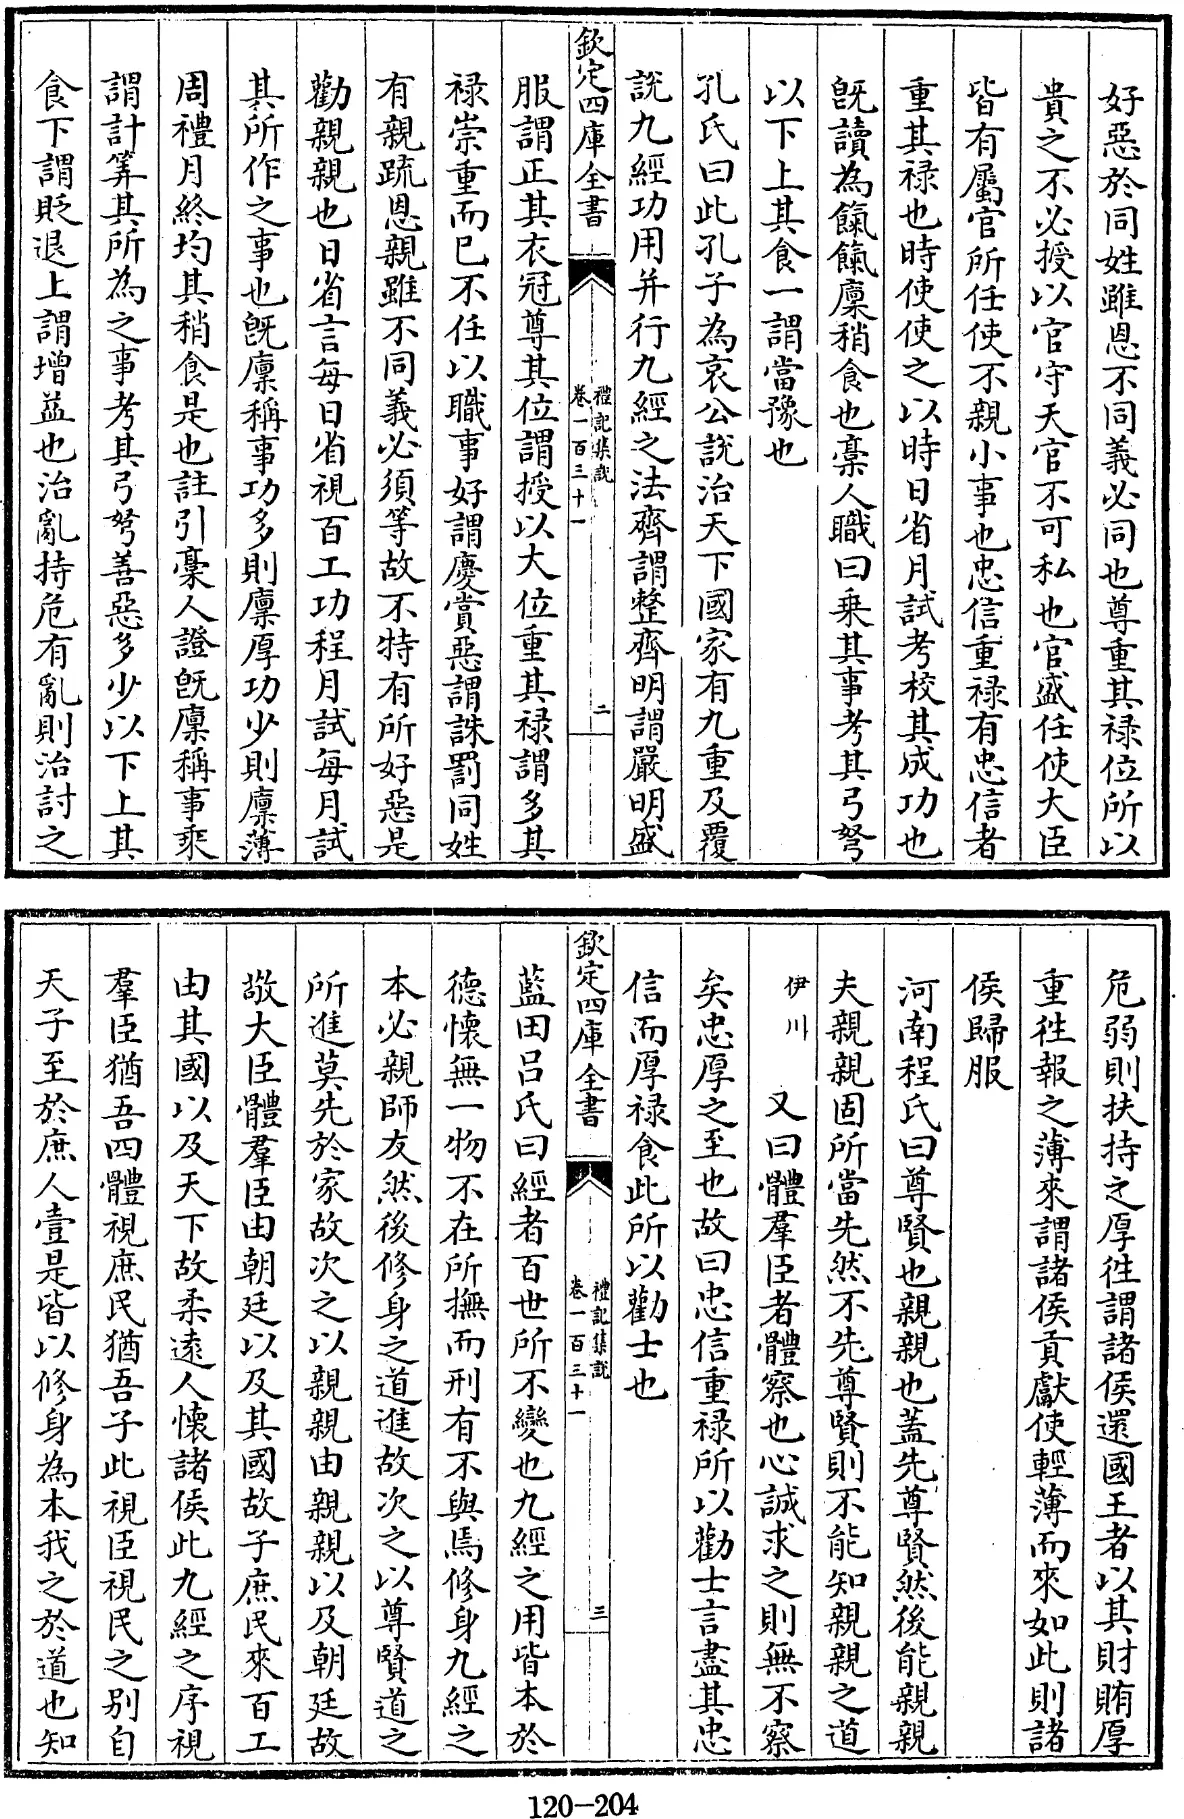 好惡於同姓雖恩不同義必同也尊重其禄位所以
貴之不必授以官守天官不可私也官盛任使大臣
皆有屬官所任使不親小事也忠信重禄有忠信者
重其禄也時使使之以時日省月試考校其成功也
旣讀為餼餼廩稍食也稾人職曰乗其事考其弓弩
以下上其食一謂當豫也
孔氏曰此孔子為哀公說治天下國家有九重及覆
說九經功用并行九經之法齊謂整齊明謂嚴明盛
欽定四庫全書
禮記集說
卷一百三十一
二
服謂正其衣冠尊其位謂授以大位重其禄謂多其
禄崇重而已不任以職事好謂慶賞惡謂誅罰同姓
有親疏恩親雖不同義必須等故不特有所好惡是
勸親親也日省言每日省視百工功程月試每月試
其所作之事也旣廪稱事功多則廪厚功少則廪薄
周禮月終均其稍食是也註引稾人證旣廪稱事乗
謂計筭其所為之事考其弓弩善惡多少以下上其
食下謂貶退上謂增益也治亂持危有亂則治討之
危弱則扶持之厚徃謂諸侯還國王者以其財賄厚
重徃報之薄來謂諸侯貢獻使輕薄而來如此則諸
侯歸服
河南程氏曰尊賢也親親也蓋先尊賢然後能親親
夫親親固所當先然不先尊賢則不能知親親之道
伊川　又曰體羣臣者體察也心誠求之則無不察
矣忠厚之至也故曰忠信重禄所以勸士言盡其忠
信而厚禄食此所以勸士也
欽定四庫全書
禮記集說
卷一百三十一
三
藍田吕氏曰經者百世所不變也九經之用皆本於
德懷無一物不在所撫而刑有不與焉修身九經之
本必親師友然後修身之道進故次之以尊賢道之
所進莫先於家故次之以親親由親親以及朝廷故
敬大臣體羣臣由朝廷以及其國故子庶民來百工
由其國以及天下故柔逺人懷諸侯此九經之序視
羣臣猶吾四體視庶民猶吾子此視臣視民之别自
天子至於庶人壹是皆以修身為本我之於道也知
120-204